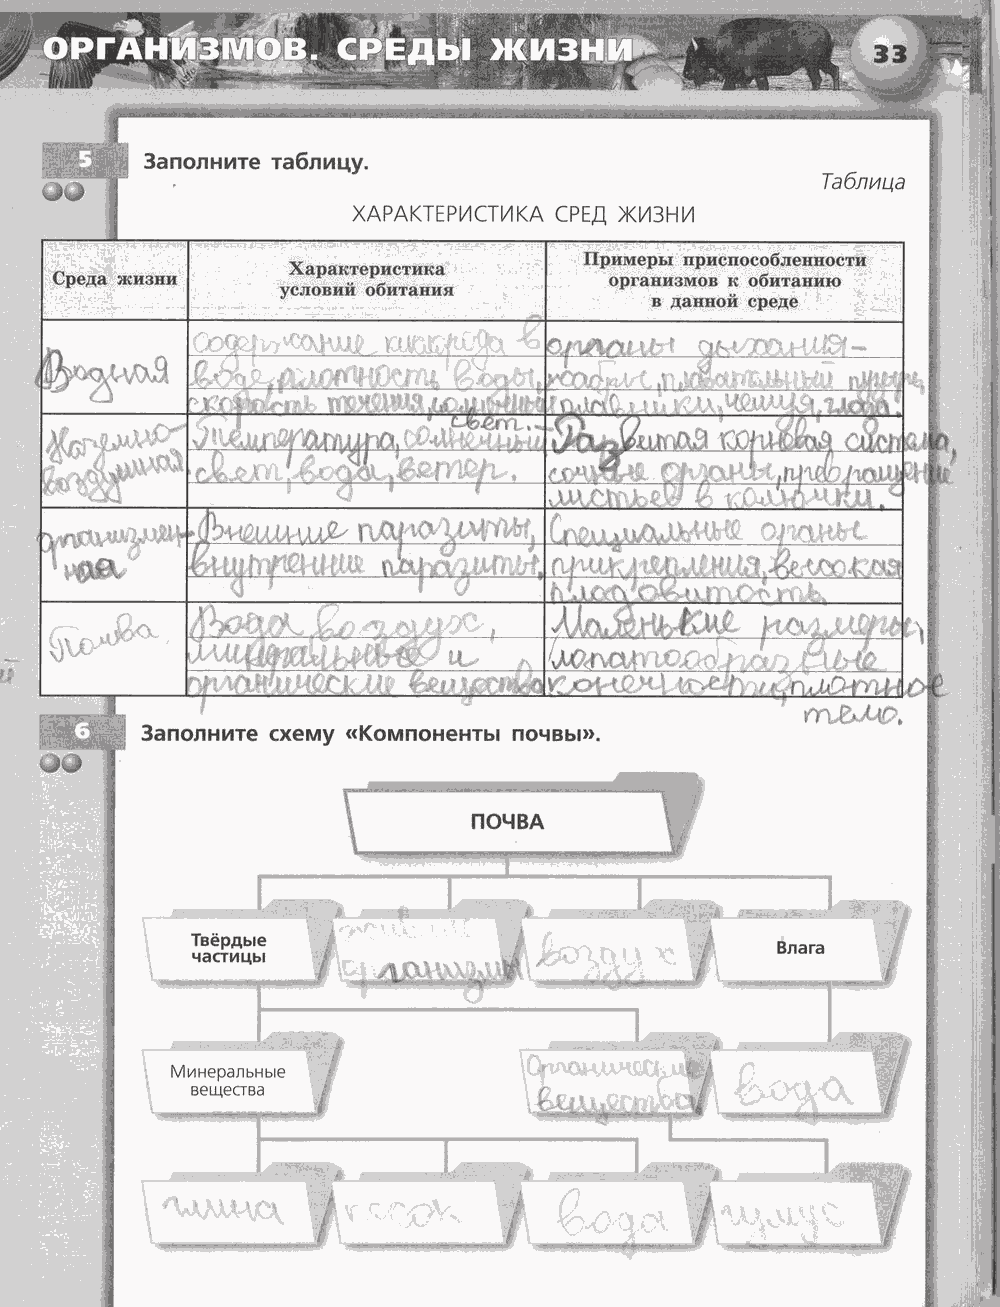 ОРГАНИЗМОВ. СРЕДЫ ЖИЗНИ
33
5
Заполните таблицу.
Таблица
ХАРАКТЕРИСТИКА СРЕД ЖИЗНИ
Среда жизни
Характеристика
условий обитания
Примеры приспособленности
организмов к обитанию
в данной среде
Водная
содержание кислорода в
воде, плотность воды,
скорость течения, солнечный
свет.
органы дыхания-
жабры, плавательный пузырь,
плавники, чешуя, глаза.
Наземно-
воздушная
Температура, солнечный
свет, вода, ветер.
Развитая корневая система,
сочные органы, превращение
листьев в колючки.
Организмен-
ная
Внешние паразиты,
внутренние паразиты.
Специальные органы
прикрепления, высокая
плодовитость
Почва
Вода, воздух,
минеральные и
органические вещества
Маленькие размеры,
лопатообразные
конечности, плотное
тело.
6
Заполните схему «Компоненты почвы».
ПОЧВА
Твёрдые
частицы
живые
организмы
воздух
Влага
Минеральные
вещества
Органические
вещества
вода
глина
песок
вода
гумус